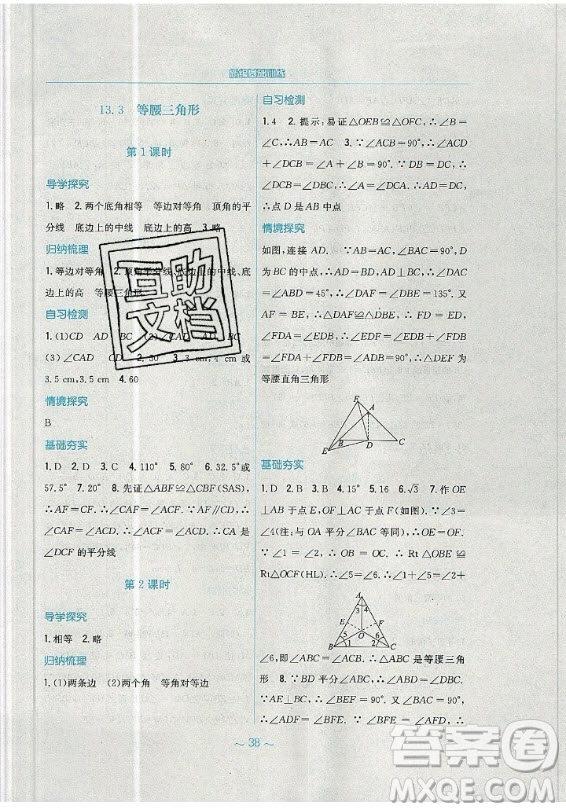 新编基础训练
13.3 等腰三角形
第1课时
导学探究
1.略 2.两个底角相等 等边对等角 顶角的平
分线 底边上的中线 底边上的高 3.略
归纳梳理
1.等边对等角 2.顶角平分线、底边上的中线、底
边上的高 等腰三角形
自习检测
1.(1)CD AD BC (2)∠CAD BC
(3)∠CAD CD 2.50 3.4 cm,4 cm或
3.5 cm,3.5 cm 4.60
情境探究
B
基础夯实
1.D 2.D 3.C 4.110° 5.80° 6.32.5°或
57.5° 7.20° 8.先证△ABF≌△CBF(SAS),
∴AF=CF. ∴∠CAF=∠ACF. ∵AF∥CD,∴
∠CAF=∠ACD. ∴∠ACF=∠ACD. ∴CA是
∠DCF的平分线
第2课时
导学探究
1.相等 2.略
归纳梳理
1.(1)两条边 (2)两个角 等角对等边
自习检测
1.4 2.提示:易证△OEB≌△OFC,∴∠B=
∠C,∴AB=AC 3.∵∠ACB=90°,∴∠ACD
+∠DCB=∠A+∠B=90°. ∵DC=DB,∴∠B
=∠DCB. ∴∠A=∠ACD. ∴AD=CD. ∴AD=
DB,∴点D是AB中点
情境探究
如图,连接AD. ∵AB=AC,∠BAC=90°,D
为BC的中点,∴AD=BD,AD⊥BC. ∴∠DAC=
∠ABD=45°,∴∠DAF=∠DBE=135°. 又
AF=BE,∴△DAF≌△DBE,∴FD=ED,
∠FDA=∠EDB. ∴∠EDF=∠EDB+
∠FDB=∠FDA+∠FDB=∠ADB=90°. ∴△DEF是
等腰直角三角形
F
A
E
B
D
C
基础夯实
1.D 2.B 3.B 4.15° 5.16 6.√3 7.作OE
⊥AB于点E,OF⊥AC于点F(如图). ∵∠3=
∠4(注:与OA平分∠BAC等同),∴OE=OF.
∵∠1=∠2,∴OB=OC. ∴Rt△OBE≌
Rt△OCF(HL). ∴∠5=∠6. ∴∠1+∠5=∠2+
A
3 4
E F
5 O 6
B 1 2 C
∠6,即∠ABC=∠ACB. ∴△ABC是等腰三角
形 8.∵BD平分∠ABC,∴∠ABD=∠DBC.
∵AE⊥BD,∴∠BEF=90°. ∵∠BAC=90°,
∴∠ADF=∠BFE. ∵∠BFE=∠AFD,∴
～38～
互助
文档
答案圈
MXQE.COM